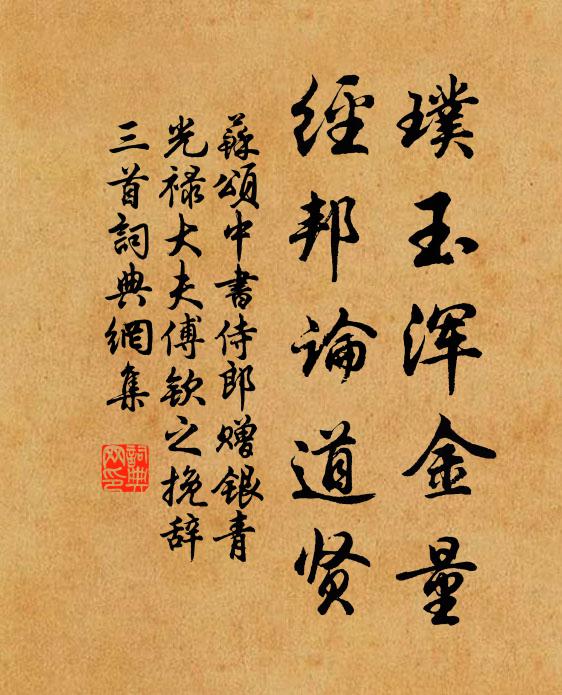 璞玉浑金量
經邦論道贤
蘇頌中書侍郎赠银青
光禄大夫傅欽之挽辞
三首詞典網集
詞典网印